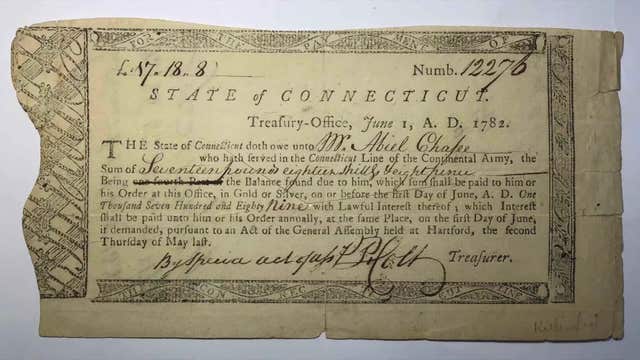 FOR THE PAYMENT OF
£17.18.8 Numb. 12276
STATE of CONNECTICUT.
Treasury-Office, June 1, A. D. 1782.
THE State of Connecticut doth owe unto Mr. Abiel Chafee
who hath served in the Connecticut Line of the Continental Army, the
Sum of Seventeen pounds eighteen Shill & Eight penc
Being one fourth Part of the Balance found due to him, which sum shall be paid to him or
his Order at this Office, in Gold or Silver, on or before the first Day of June, A. D. One
Thousand Seven Hundred and Eighty Nine with Lawful Interest thereof; which Interest
shall be paid unto him or his Order annually, at the same Place, on the first Day of June,
if demanded, pursuant to an Act of the General Assembly held at Hartford, the second
Thursday of May last.
By Special act of P. Colt Treasurer.
THE CONNECTICUT LINE